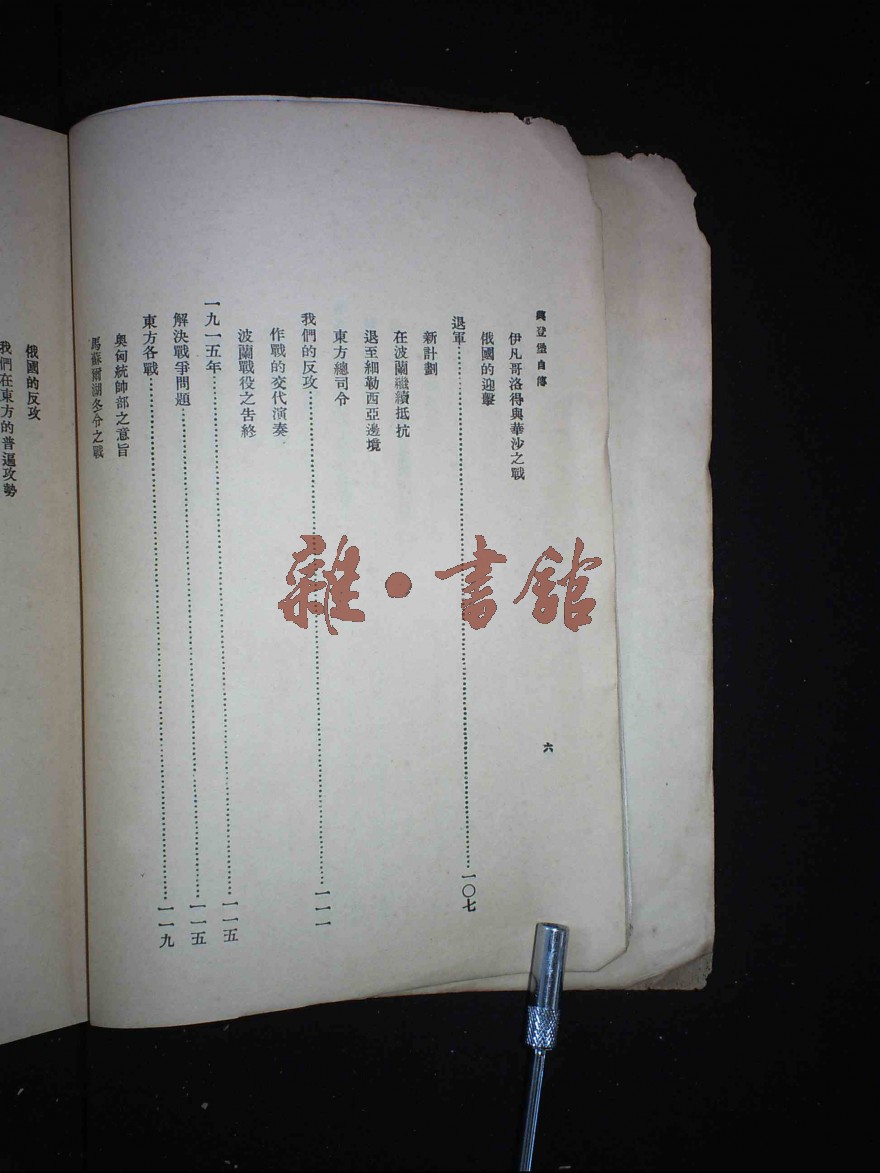 興登堡自傳
六
伊凡哥洛得與華沙之戰
俄國的迎擊
退軍……一〇七
新計劃
在波蘭繼續抵抗
退至細勒西亞邊境
東方總司令
我們的反攻……一一一
作戰的交代演奏
波蘭戰役之告終
一九一五年……一一五
解決戰爭問題……一一五
東方各戰……一一九
奧匈統帥部之意旨
馬蘇爾湖冬令之戰
俄國的反攻
我們在東方的普遍攻勢
雜·書館